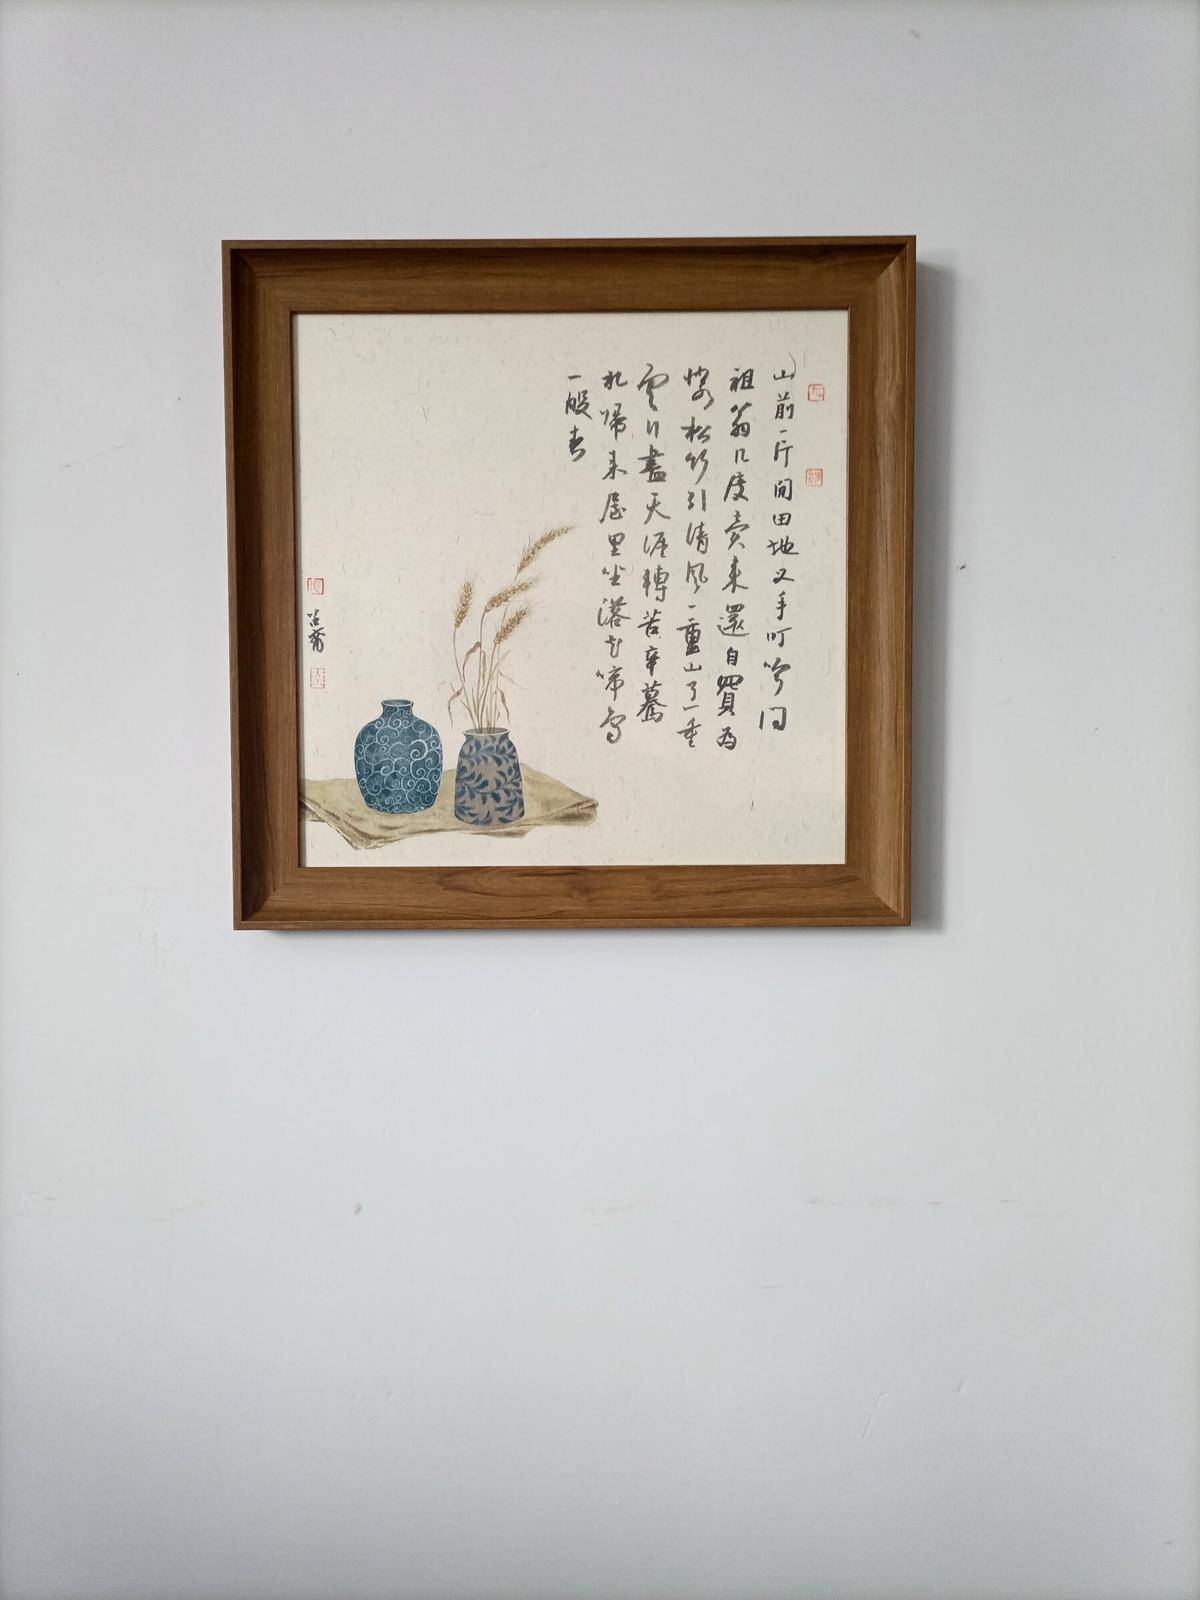 山前一片閒田地叉手叮嚀問
祖翁几度賣來還自買為
憐松竹引清風一重山了一重
雲行盡天涯轉苦辛驀
札歸来屋里坐落花啼鳥
一般春